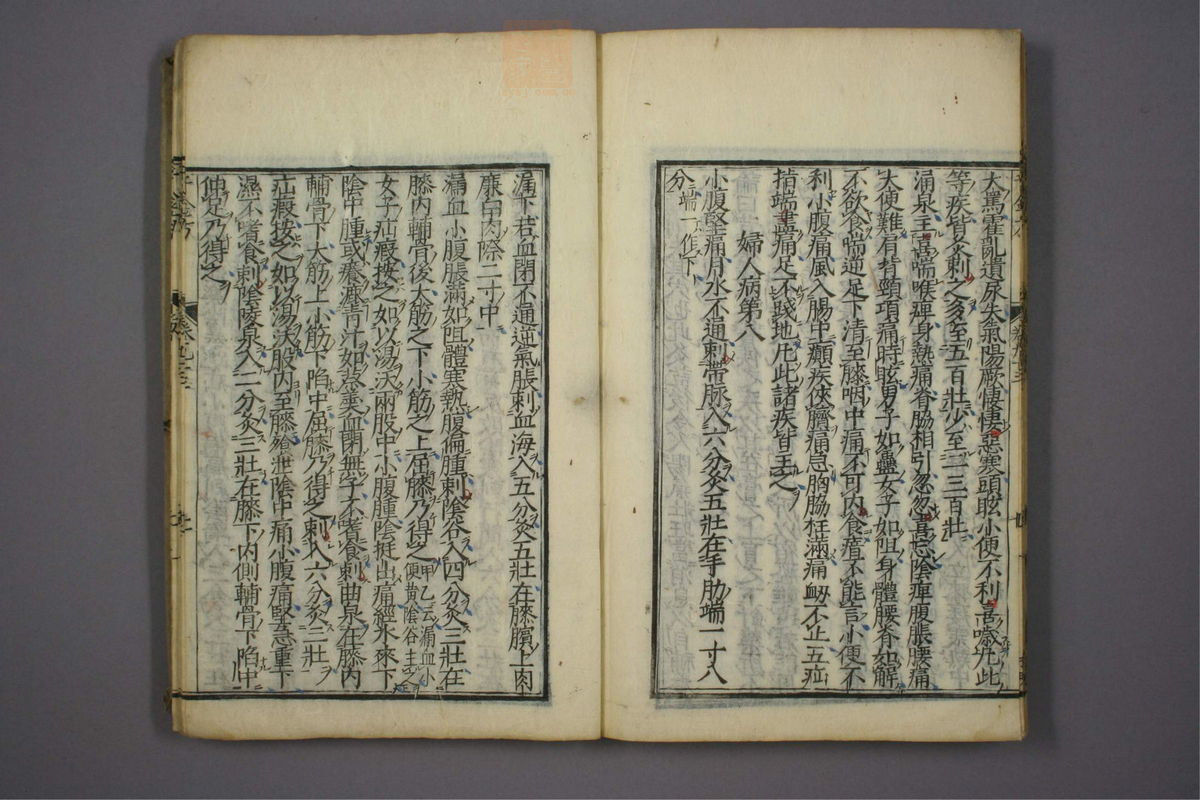 大驚霍亂遺尿失氣陽厥悽悽惡寒頭眩小便不利喜噦凡此
等疾皆灸刺之多至五百壯少至二三百壯
涌泉主喜喘喉痺身熱痛脊脇相引忽忽喜忘陰痺腹脹腰痛
大便難有背頸項痛時眩男子如蠱女子如阻身體腰脊如解
不欲食喘逆足下清至膝咽中痛不可內食瘖不能言小便不
利小腹痛風入腸中癲疾俠臍痛急胸脇柱滿痛衂不止五疝
指端盡痛足不踐地凡此諸疾皆主之
婦人病第八
小腹堅痛月水不通刺帶脉入六分灸五壯在季肋端一寸八
分端一作下
漏下若血閉不通逆氣脹刺血海入五分灸五壯在膝臏上內
廉白肉際二寸中
漏血小腹脹滿如阻體寒熱腹偏腫刺陰谷入四分灸三壯在
膝內輔骨後大筋之下小筋之上屈膝乃得之甲乙云漏血小
便黃陰谷主之
女子疝瘕按之如以湯沃兩股中小腹腫陰挺出痛經水來下
陰中腫或癢漉青汁如葵羹血閉無子不嗜食刺曲泉在膝內
輔骨下大筋上小筋下陷中屈膝乃得之刺入六分灸三壯
疝瘕按之如以湯沃股內至膝飧泄陰中痛小腹痛堅急重下
濕不嗜食刺陰陵泉入二分灸三壯在膝下內側輔骨下陷中
伸足乃得之